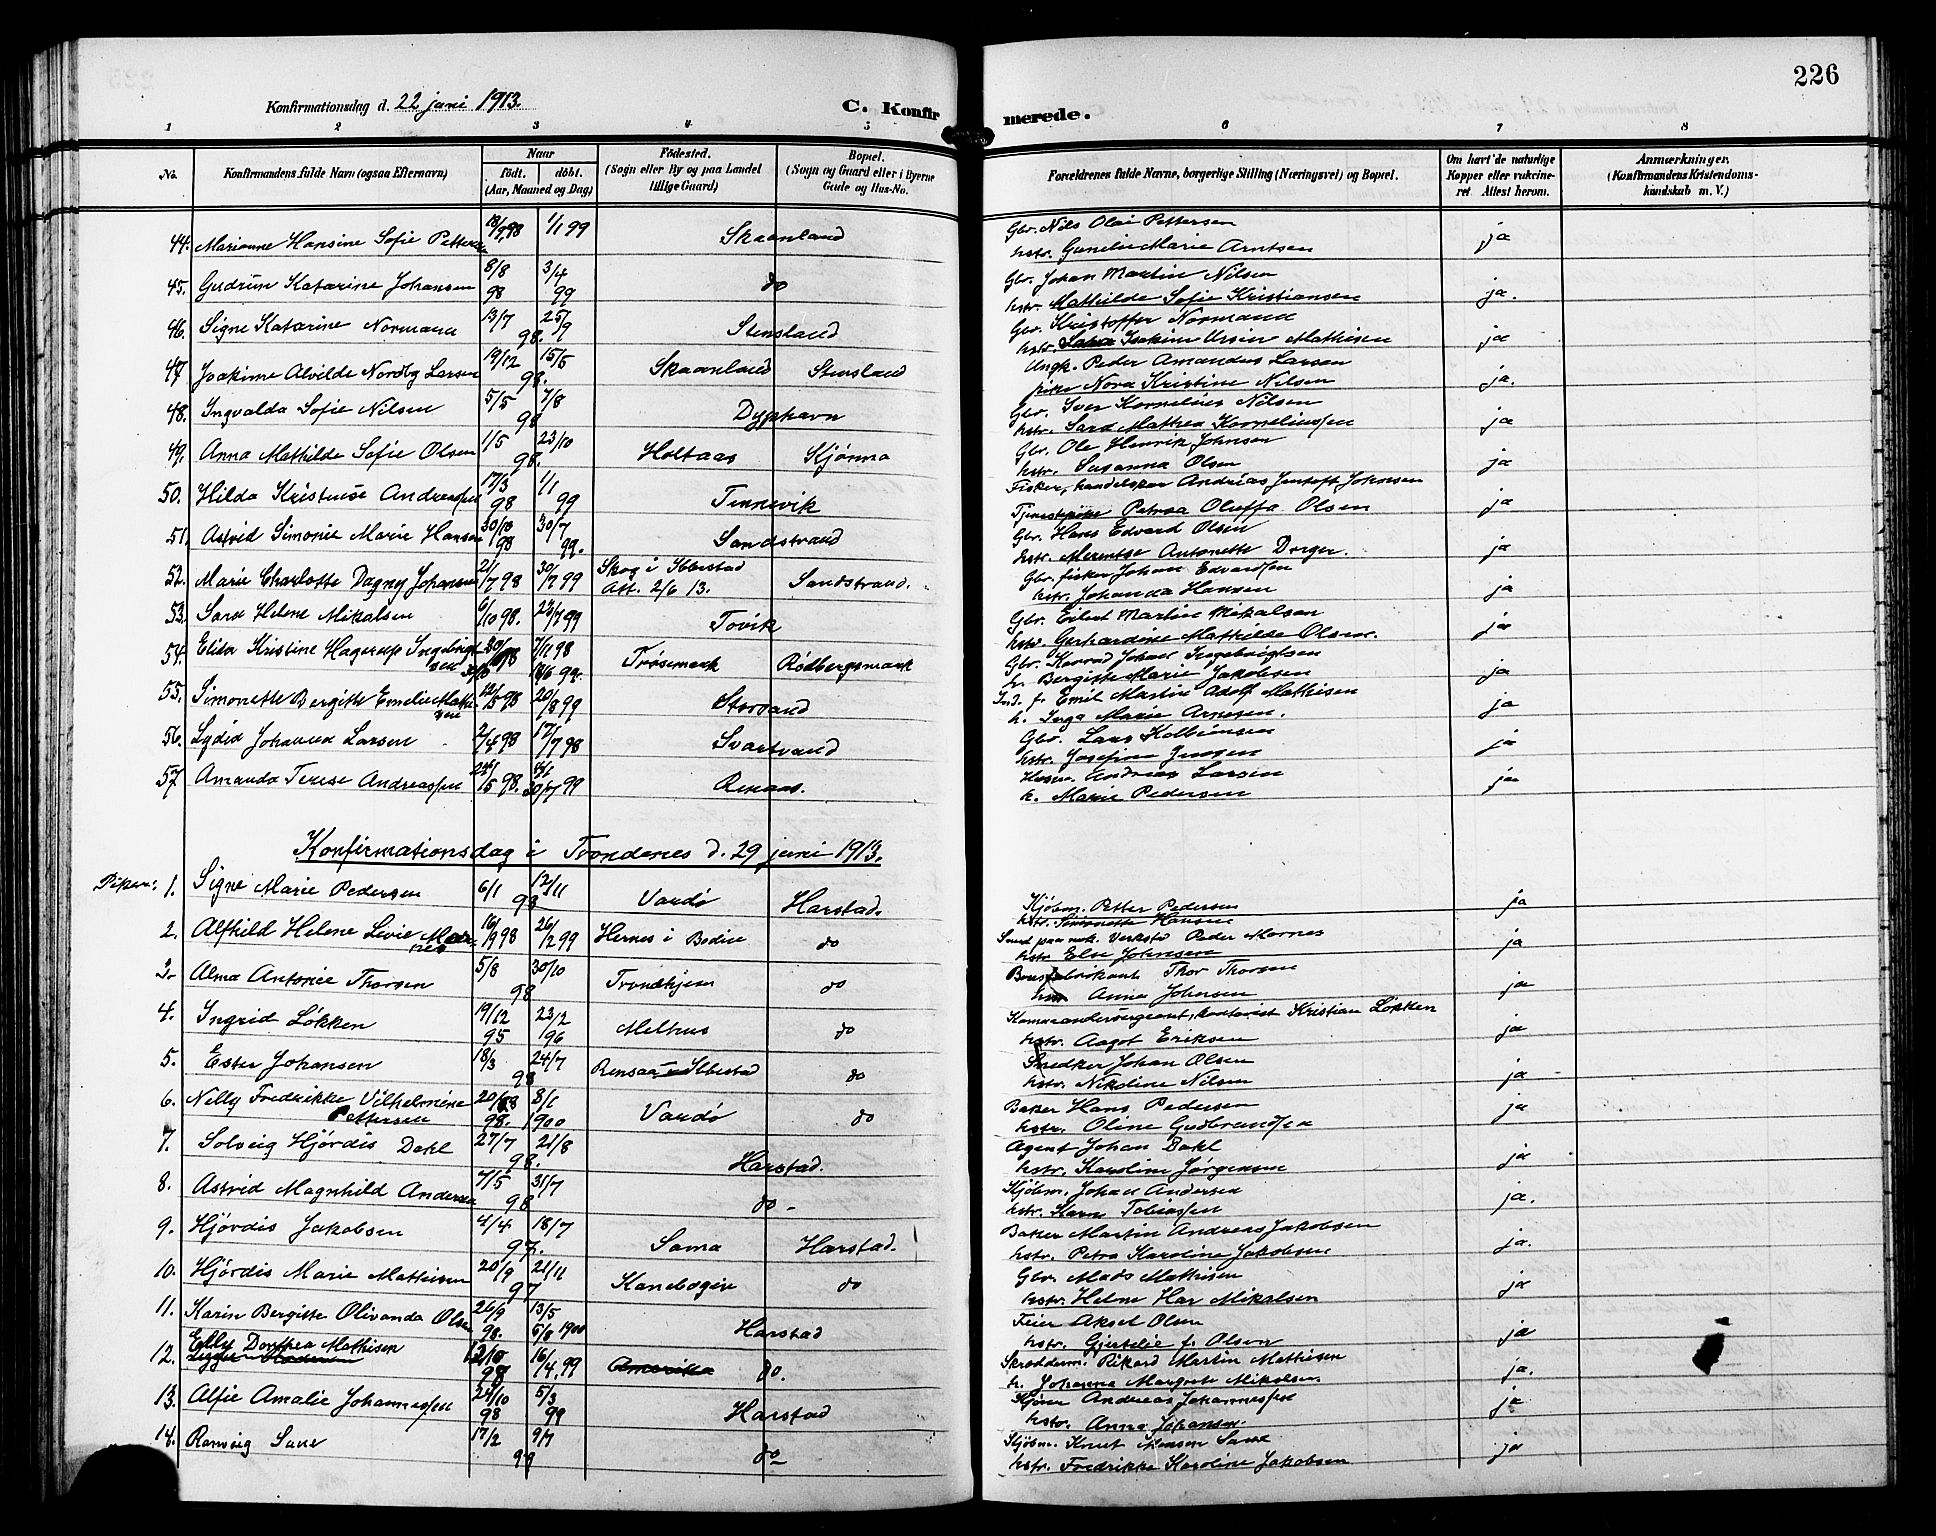 226
Konfirmationsdag d. 22 juni 1913.
C. Konfirmerede.
1 2 3 4 5 6 7 8
No. Konfirmandens fulde Navn (ogsaa Efternavn) Naar født. døbt. (Aar, Maaned og Dag) Fødested. (Sogn eller By og paa Landet tillige Gaard) Bopæl. (Sogn og Gaard eller i Byerne Gade og Hus-No. Forældrenes fulde Navne, borgerlige Stilling (Næringsvei) og Bopæl. Om havt de naturlige Kopper eller vakcineret Attest herom. Anmærkninger. (Konfirmandens Kristendomskundskab m. V.)
44. Marianne Hansine Sofie Pettersen 98 1/1 99 Skaanland Gbr. Nils Olai Pettersen
hstr. Marie Arntsen ja
45. Gudrun Katarine Johansen 8/8 98 3/4 99 do Gbr. Johan Martin Nilsen
hstr. Mathilde Sofie Kristiansen ja.
46. Signe Katarine Normann 13/7 25/9 98. Stensland Gbr. Kristoffer Normann
hstr. Joakim Ursin Mathisen ja
47 Joakime Alvilde Nordby Larsen 19/12 15/5 98. Skaanland Stensland Ungk. Peder Amandus Larsen
pike Nora Kristine Nilsen ja.
48. Ingvalda Sofie Nilsen 5/5 7/8 98 Dyphavn Gbr. Iver Kornelius Nilsen
hstr. Sara Mathea Korneliussen ja
49. Anna Mathilde Sofie Olsen 1/5 23/10 98. Holtaas Kjønna Gbr. Ole Henrik Johnsen
hstr. Susanna Olsen ja
50. Hilda Kristense Andreassen 17/3 98 1/1 99 Tennevik Fisker, handelskar Andreas Jentoft Johnsen
Tjenestpike Petrea Oluffa Olsen ja
51. Astrid Simonie Marie Hansen 30/10 98 30/7 99. Sandstrand Gbr. Hans Edvard Olsen
hstr. Merentse Antonette Dreger. ja
52. Marie Charlotte Dagny Johansen 21/7 98 30/7 99 Skog i Ibbestad Att. 2/6 13. Sandstrand. Gbr. fisker Johan Edvardsen
hstr. Johanna Hansen ja
53. Sara Helene Mikalsen 6/10 98. 23/7 99 Tovik Gbr. Eilert Martin Mikalsen
hstr. Gerhardine Mathilde Olsen. ja
54. Elida Kristine Hagerup Ingebrigtsen 98 7/11 98 18/6 99. Trøsemark Rødbergsmark Gbr. Konrad Johan Ingebrigtsen
h. Bergitte Marie Jakobsen ja
55. Simonette Bergitte Emelie Mathisen 12/5 98 20/8 99 Storsand Ind. f. Emil Martin Adolf Mathisen
h. Inga Marie Arnesen. ja
56. Lydia Johanna Larsen 2/4 98 17/7 98 Svartvand Gbr. Lars Kolbeinsen
hstr. Josefine Jensen ja
57. Amanda Terese Andreassen 98. 30/7 99 Renaas. Husm. Andreas Larsen
h. Marie Pedersen ja
Konfirmationsdag i Trondenes d. 29 juni 1913.
Piker: 1. Signe Marie Pedersen 6/1 12/11 98 Vardø Harstad. Kjøbm. Petter Pedersen
hstr. Simonette Hansen ja
2. Alfhild Helene Livie Mornes 16/9 98 26/2 99 Hernes i Bodin do Smed paa mek. Verksted Peder Mornes
hstr. Else Johnsen ja
3. Alma Antonie Thorsen 5/8 30/10 98 Trondhjem do Brusfabrikant Thor Thorsen
Anna Johnsen ja
4. Ingrid Løkken 19/12 95 23/2 96 Melhus do Kommandersergeant, kontorist Kristian Løkken
hstr. Aagot Eriksen ja
5. Ester Johansen 18/3 24/7 98 Rensaa Ibbestad do Snedker Johan Olsen
hstr. Nikoline Nilsen ja
6. Nelly Fredrikke Vilhelmine Pettersen 98. 8/1 1900 Vardø do Baker Hans Pedersen
hstr. Oline Gudbrandsen ja
7. Solveig Hjørdis Dahl 27/7 21/8 98. Harstad. Agent Johan Dahl
hstr. Karoline Jørgensen ja
8. Astrid Magnhild Andersen 7/5 31/7 98 do - Kjøbm. Johan Andersen
hstr. Karn Tobiassen ja.
9. Hjørdis Jakobsen 4/4 18/7 97. Sama Harstad. Baker Martin Andreas Jakobsen
hstr. Petra Karoline Jakobsen ja.
10. Hjørdis Marie Mathisen 20/9 21/11 97 Kanebogen do Gbr. Mads Mathisen
hstr. Helene Har Mikalsen ja
11. Karin Bergitte Olivanda Olsen 26/9 98. 13/5 6/8 1900 Harstad Feier Aksel Olsen
hstr. Gjertelie f. Olsen ja
12. Elly Dorthea Mathisen 12/10 98 16/4 99 Amerika do. Skræddem. Rikard Martin Mathisen
h. Johanna Margrete Mikalsen ja.
13. Alfie Amalie Johannessen 24/10 98 5/3 99 Harstad Kjører Andreas Johannessen
hstr. Anna Johansen ja
14. Ranveig Sane 17/2 9/7 99 do Kjøbm. Knut Monsen Sane
hstr. Fredrikke Karoline Jakobsen ja